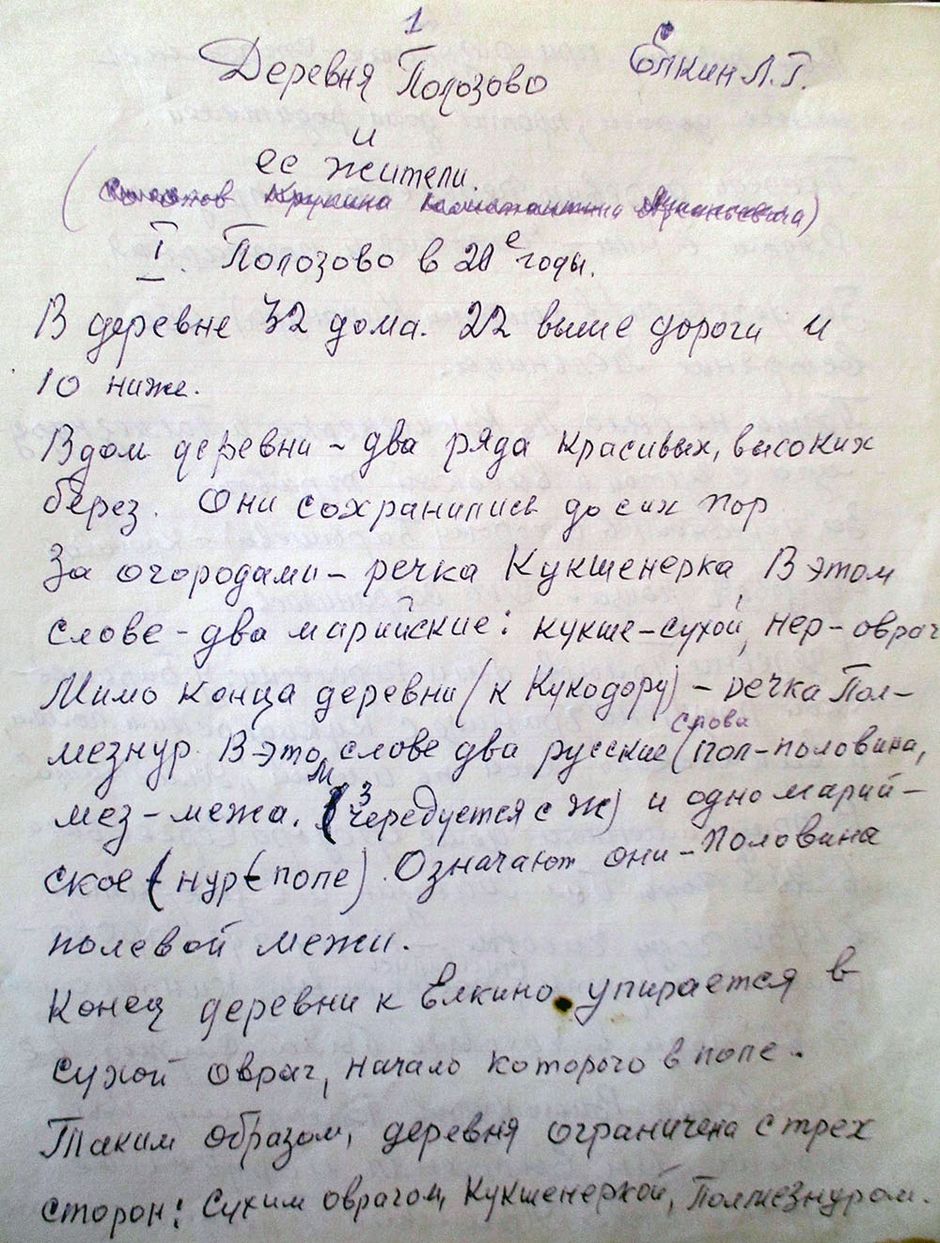 1
Деревня Полозово Ёлкин Л.Г.
и
ее жители.
I. Полозово в 20е годы.
В деревне 32 дома. 22 выше дороги и
10 ниже.
Вдол деревни - два ряда красивых, высоких
берез. Они сохранились до сих пор
За огородами - речка Кукшенерка В этом
слове - два марийские: кукше-сухой, нер-овраг
Мимо конца деревни (к Кукодору) - речка Пол-
мезнур. В этом слове два русские слова (пол-половина,
мез-межа. (З чередуется с Ж) и одно марий-
ское (нур-поле). Означают они - половина
полевой межи.
Конец деревни к Ёлкино упирается в
сухой овраг, начало которого в поле.
Таким образом, деревня ограничена с трех
сторон: Сухим оврагом, Кукшенеркой, Полмезнуром.